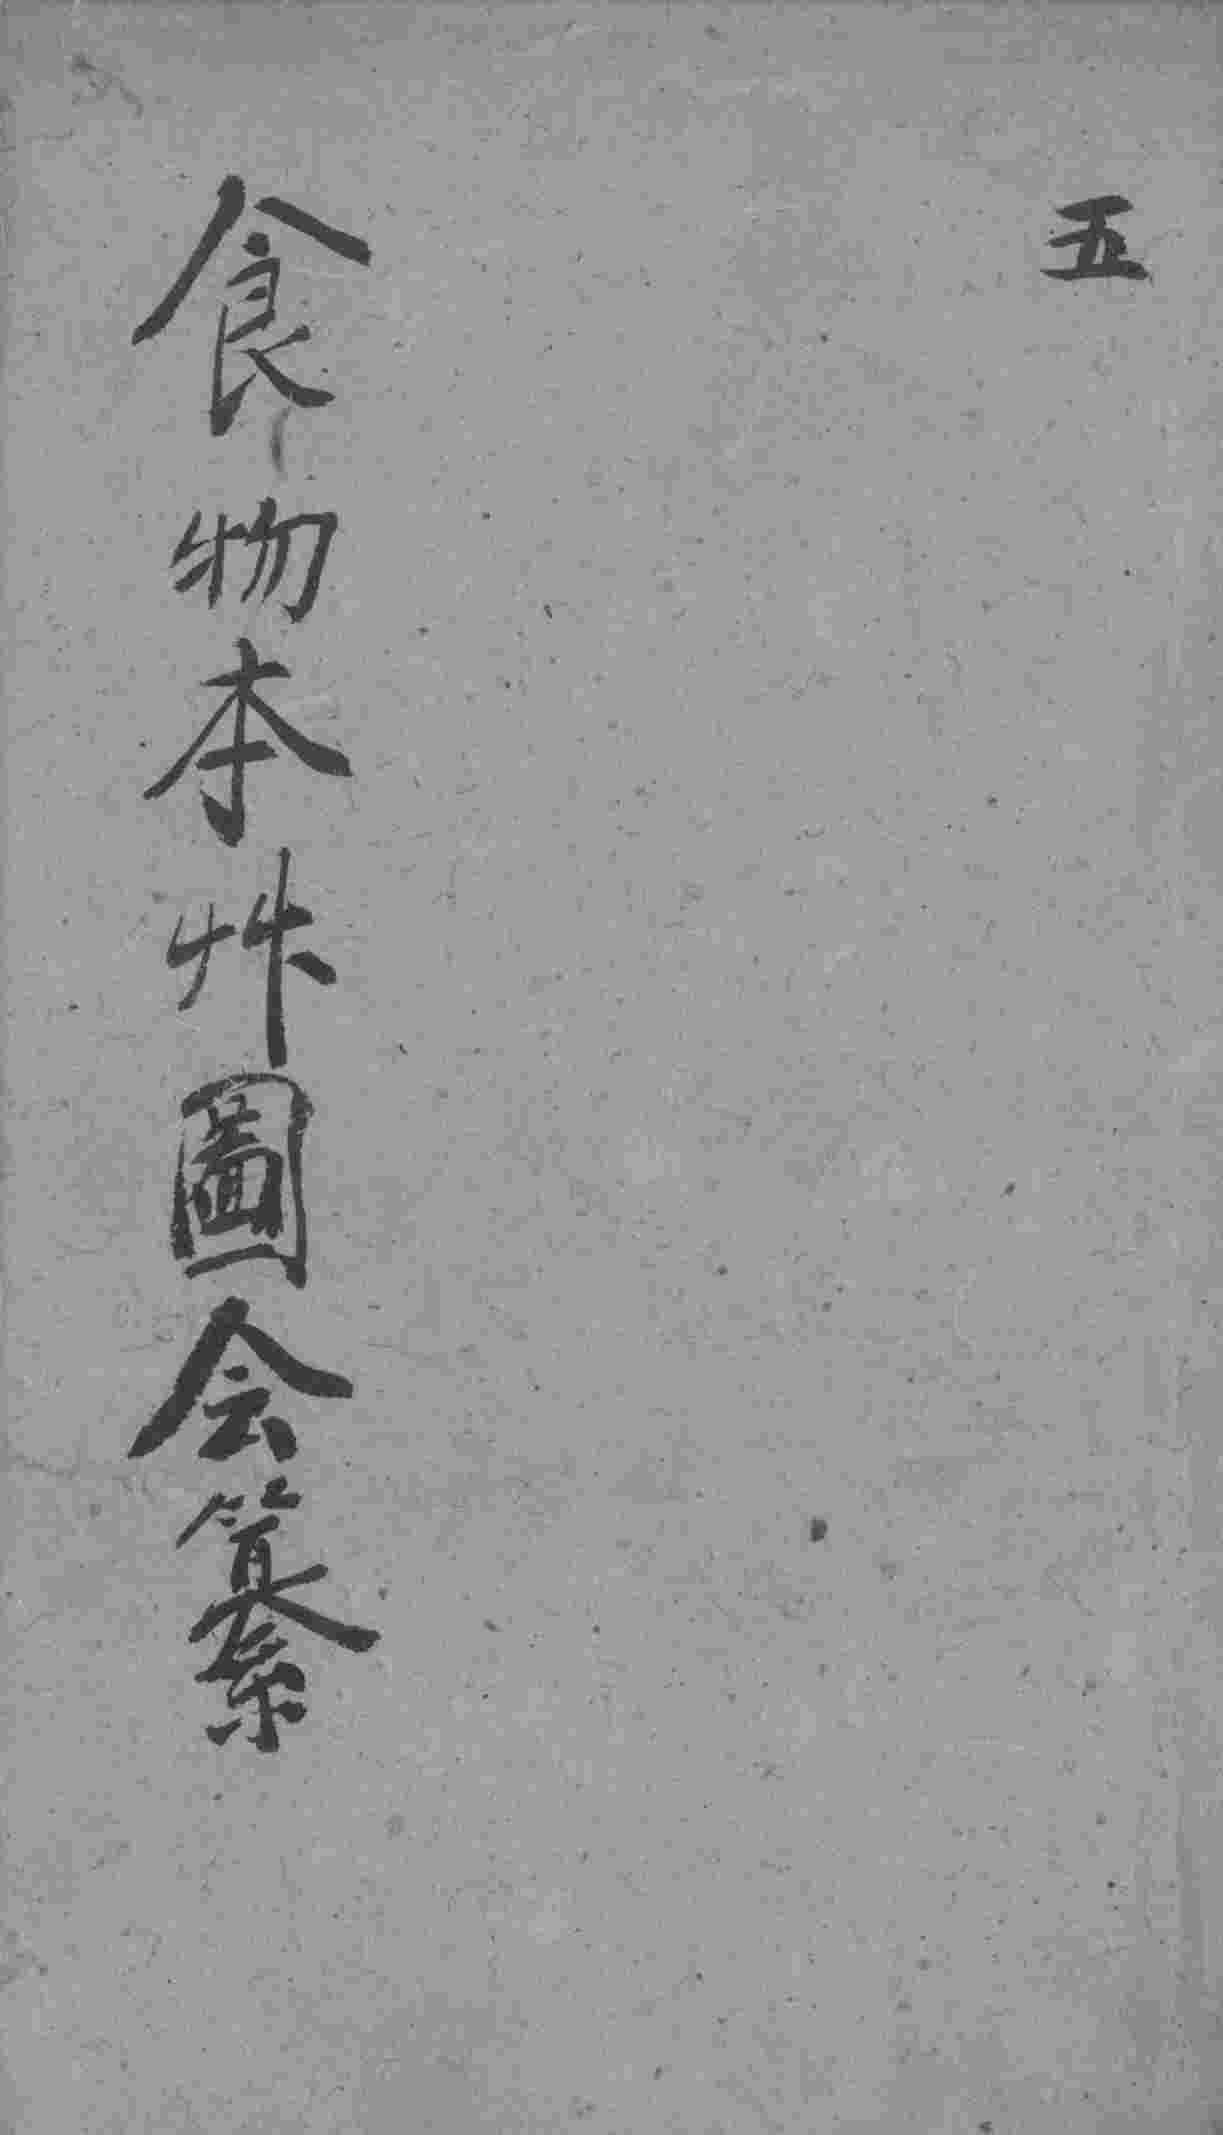 五
食物本艸圖会纂